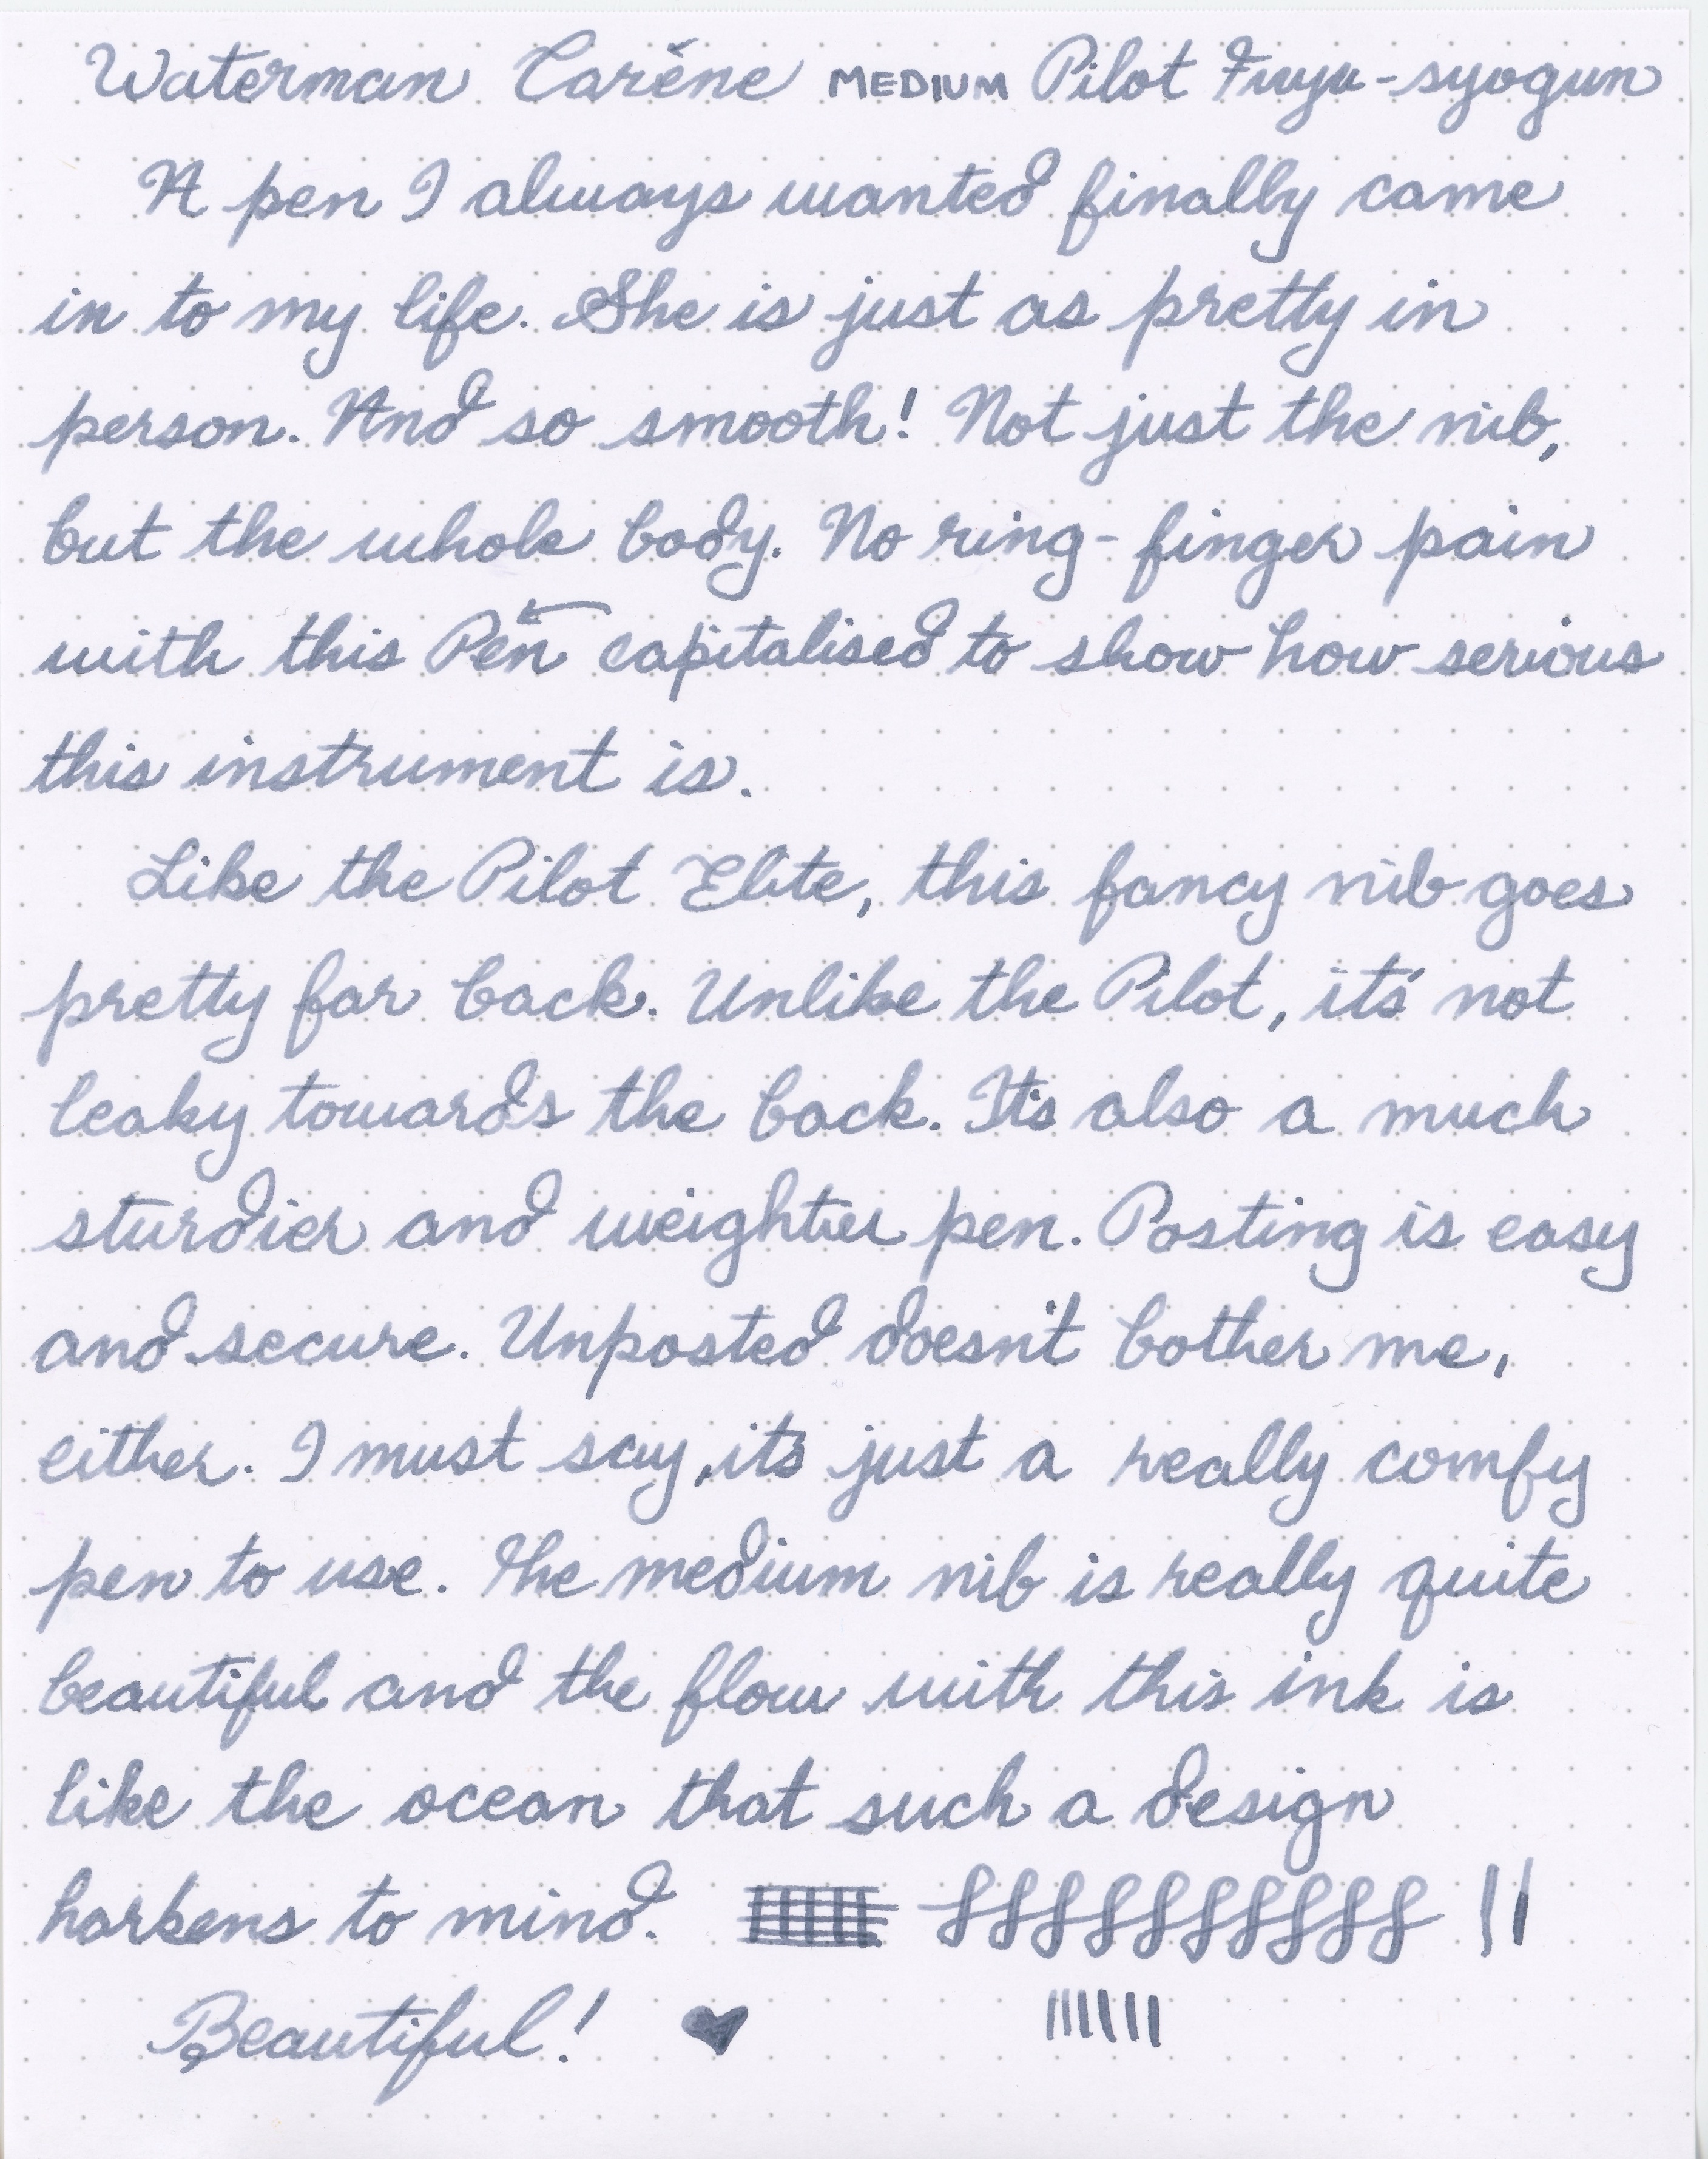 Waterman Carène MEDIUM Pilot Fuyu-syogun
A pen I always wanted finally came
in to my life. She is just as pretty in
person. And so smooth! Not just the nib,
but the whole body. No ring-finger pain
with this Pen ← capitalised to show how serious
this instrument is.
Like the Pilot Elite, this fancy nib goes
pretty far back. Unlike the Pilot, it's not
leaky towards the back. It's also a much
sturdier and weightier pen. Posting is easy
and secure. Unposted doesn't bother me,
either. I must say, it's just a really comfy
pen to use. The medium nib is really quite
beautiful and the flow with this ink is
like the ocean that such a design
harkens to mind.
Beautiful! ♥